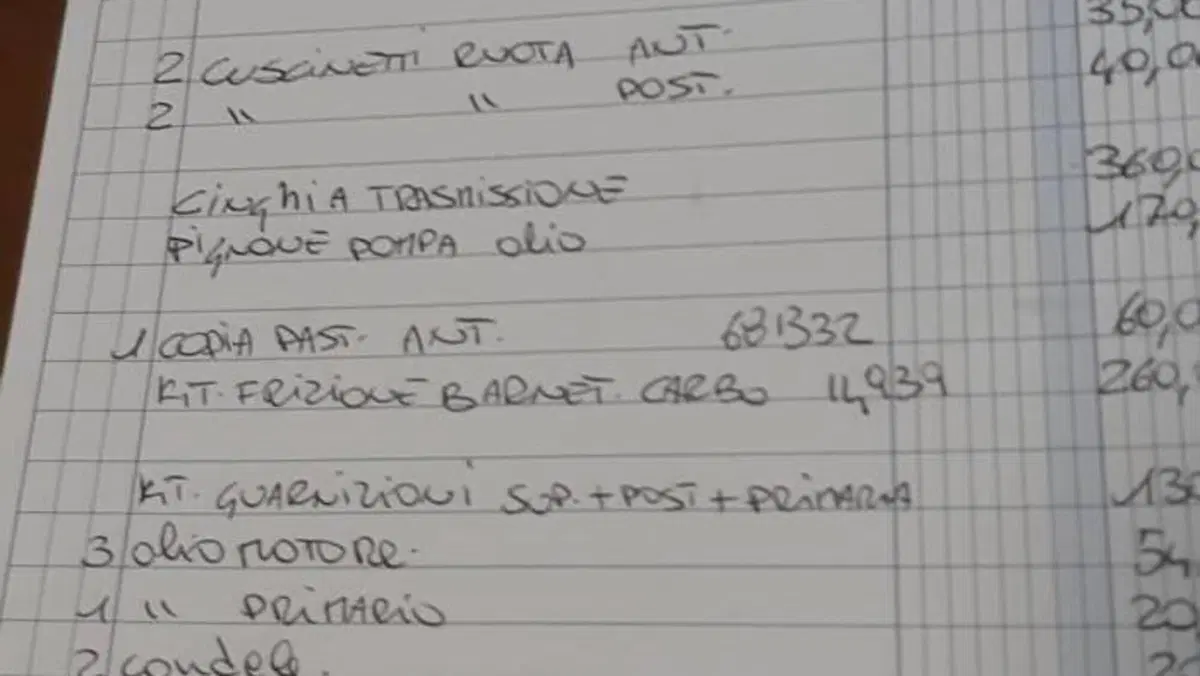 35,00
2 CUSCINETTI RUOTA ANT. 40,0
2 " " POST.
CINGHIA TRASMISSIONE 360,0
PIGNONE POMPA OLIO 170,
1 COPIA PAST. ANT. 681332 60,0
KIT. FRIZIONE BARNET. CARBO 14,939 260,
KIT. GUARNIZIONI SUP. + POST + PRIMARIA 13
3 OLIO MOTORE. 54,
1 " PRIMARIO 20,
2 candele.